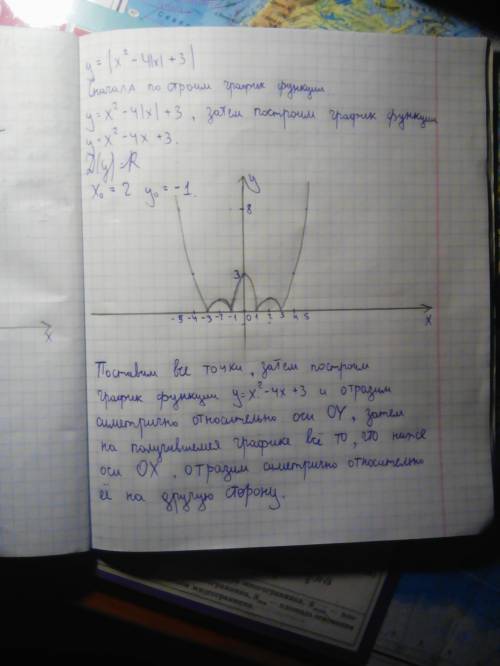 y = |x² - 4|x| + 3|
Сначала построим график функции
y = x² - 4|x| + 3, затем построим график функции
y = x² - 4x + 3.
D(y) = R
x₀ = 2 y₀ = -1.
y
8
3
-5 -4 -3 -2 -1 0 1 2 3 4 5
x
x
Поставим все точки, затем построим
график функции y = x² - 4x + 3 и отразим
симетрично относительно оси OY, затем
на получившемся графике всё то, что ниже
оси OX, отразим симетрично относително
её на другую сторону.